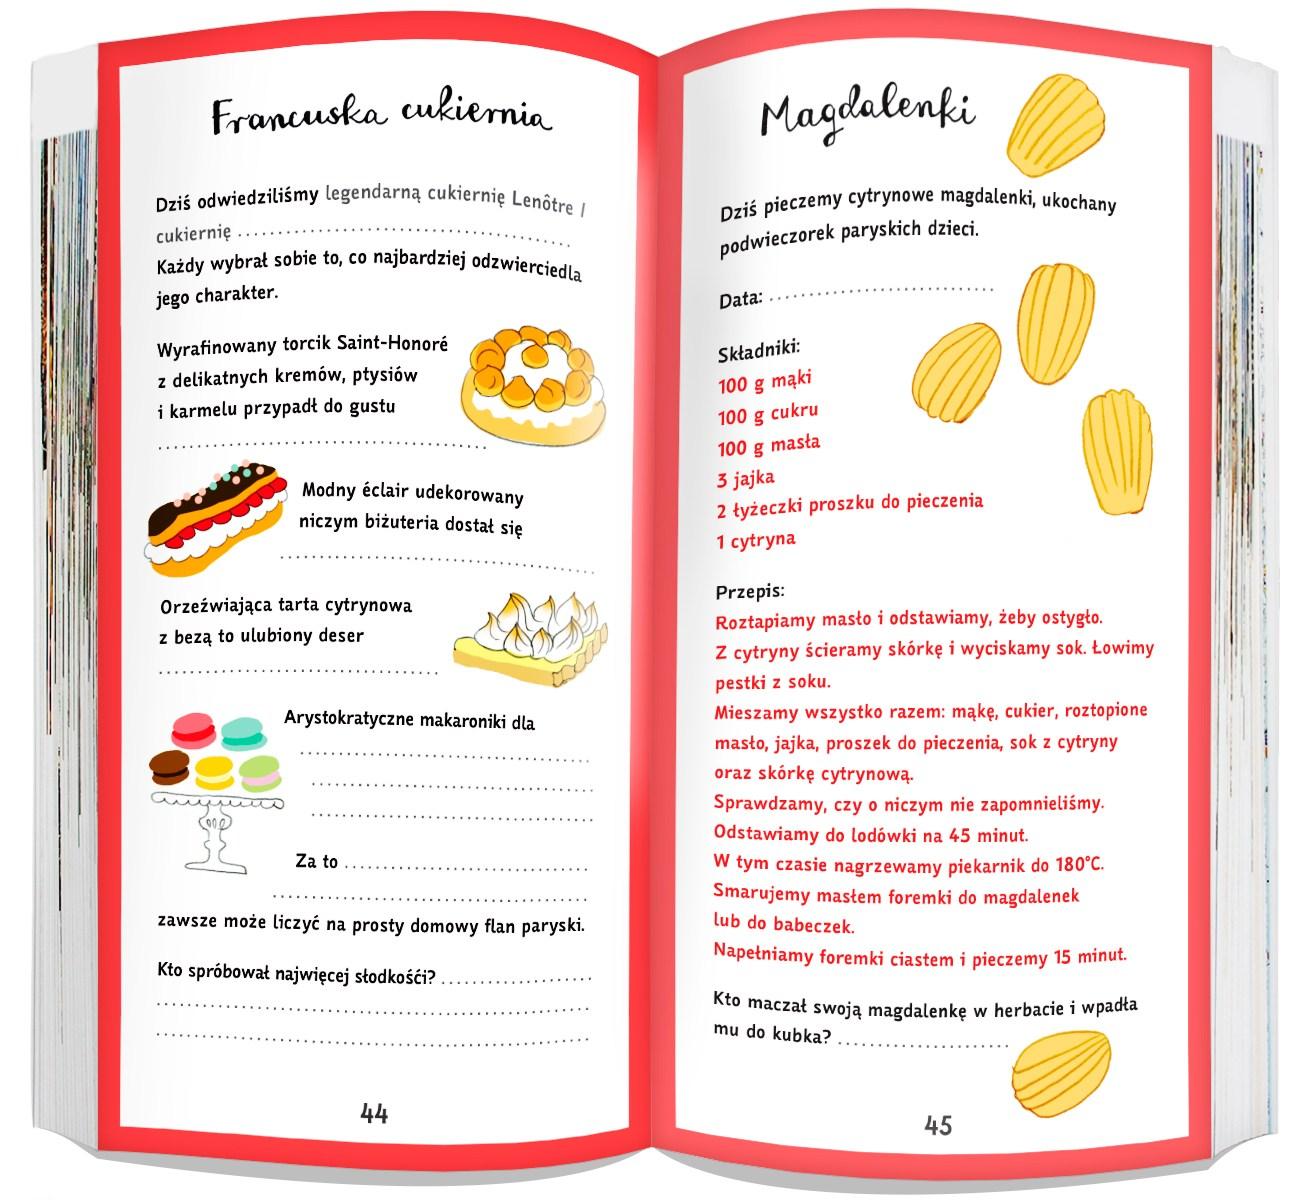 Francuska cukiernia
Dziś odwiedziliśmy legendarną cukiernię Lenôtre /
cukiernię
Każdy wybrał sobie to, co najbardziej odzwierciedla
jego charakter.
Wyrafinowany torcik Saint-Honoré
z delikatnych kremów, ptysiów
i karmelu przypadł do gustu
Modny éclair udekorowany
niczym biżuteria dostał się
Orzeźwiająca tarta cytrynowa
z bezą to ulubiony deser
Arystokratyczne makaroniki dla
Za to
zawsze może liczyć na prosty domowy flan paryski.
Kto spróbował najwięcej słodkośći?
44
Magdalenki
Dziś pieczemy cytrynowe magdalenki, ukochany
podwieczorek paryskich dzieci.
Data:
Składniki:
100 g mąki
100 g cukru
100 g masła
3 jajka
2 łyżeczki proszku do pieczenia
1 cytryna
Przepis:
Roztapiamy masło i odstawiamy, żeby ostygło.
Z cytryny ścieramy skórkę i wyciskamy sok. Łowimy
pestki z soku.
Mieszamy wszystko razem: mąkę, cukier, roztopione
masło, jajka, proszek do pieczenia, sok z cytryny
oraz skórkę cytrynową.
Sprawdzamy, czy o niczym nie zapomnieliśmy.
Odstawiamy do lodówki na 45 minut.
W tym czasie nagrzewamy piekarnik do 180°C.
Smarujemy masłem foremki do magdalenek
lub do babeczek.
Napełniamy foremki ciastem i pieczemy 15 minut.
Kto maczał swoją magdalenkę w herbacie i wpadła
mu do kubka?
45